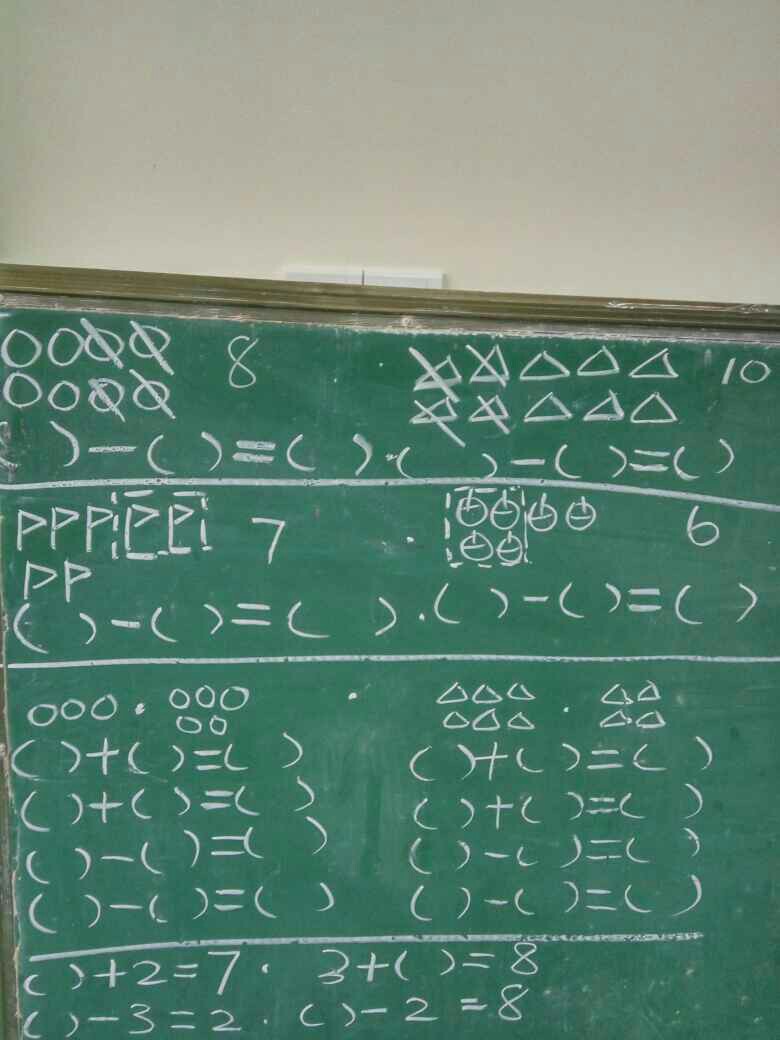 8 10
( ) - ( ) = ( ) . ( ) - ( ) = ( )
7 . 6
( ) - ( ) = ( ) . ( ) - ( ) = ( )
( ) + ( ) = ( ) ( ) + ( ) = ( )
( ) + ( ) = ( ) ( ) + ( ) = ( )
( ) - ( ) = ( ) ( ) - ( ) = ( )
( ) - ( ) = ( ) ( ) - ( ) = ( )
( ) + 2 = 7 . 3 + ( ) = 8
( ) - 3 = 2 . ( ) - 2 = 8